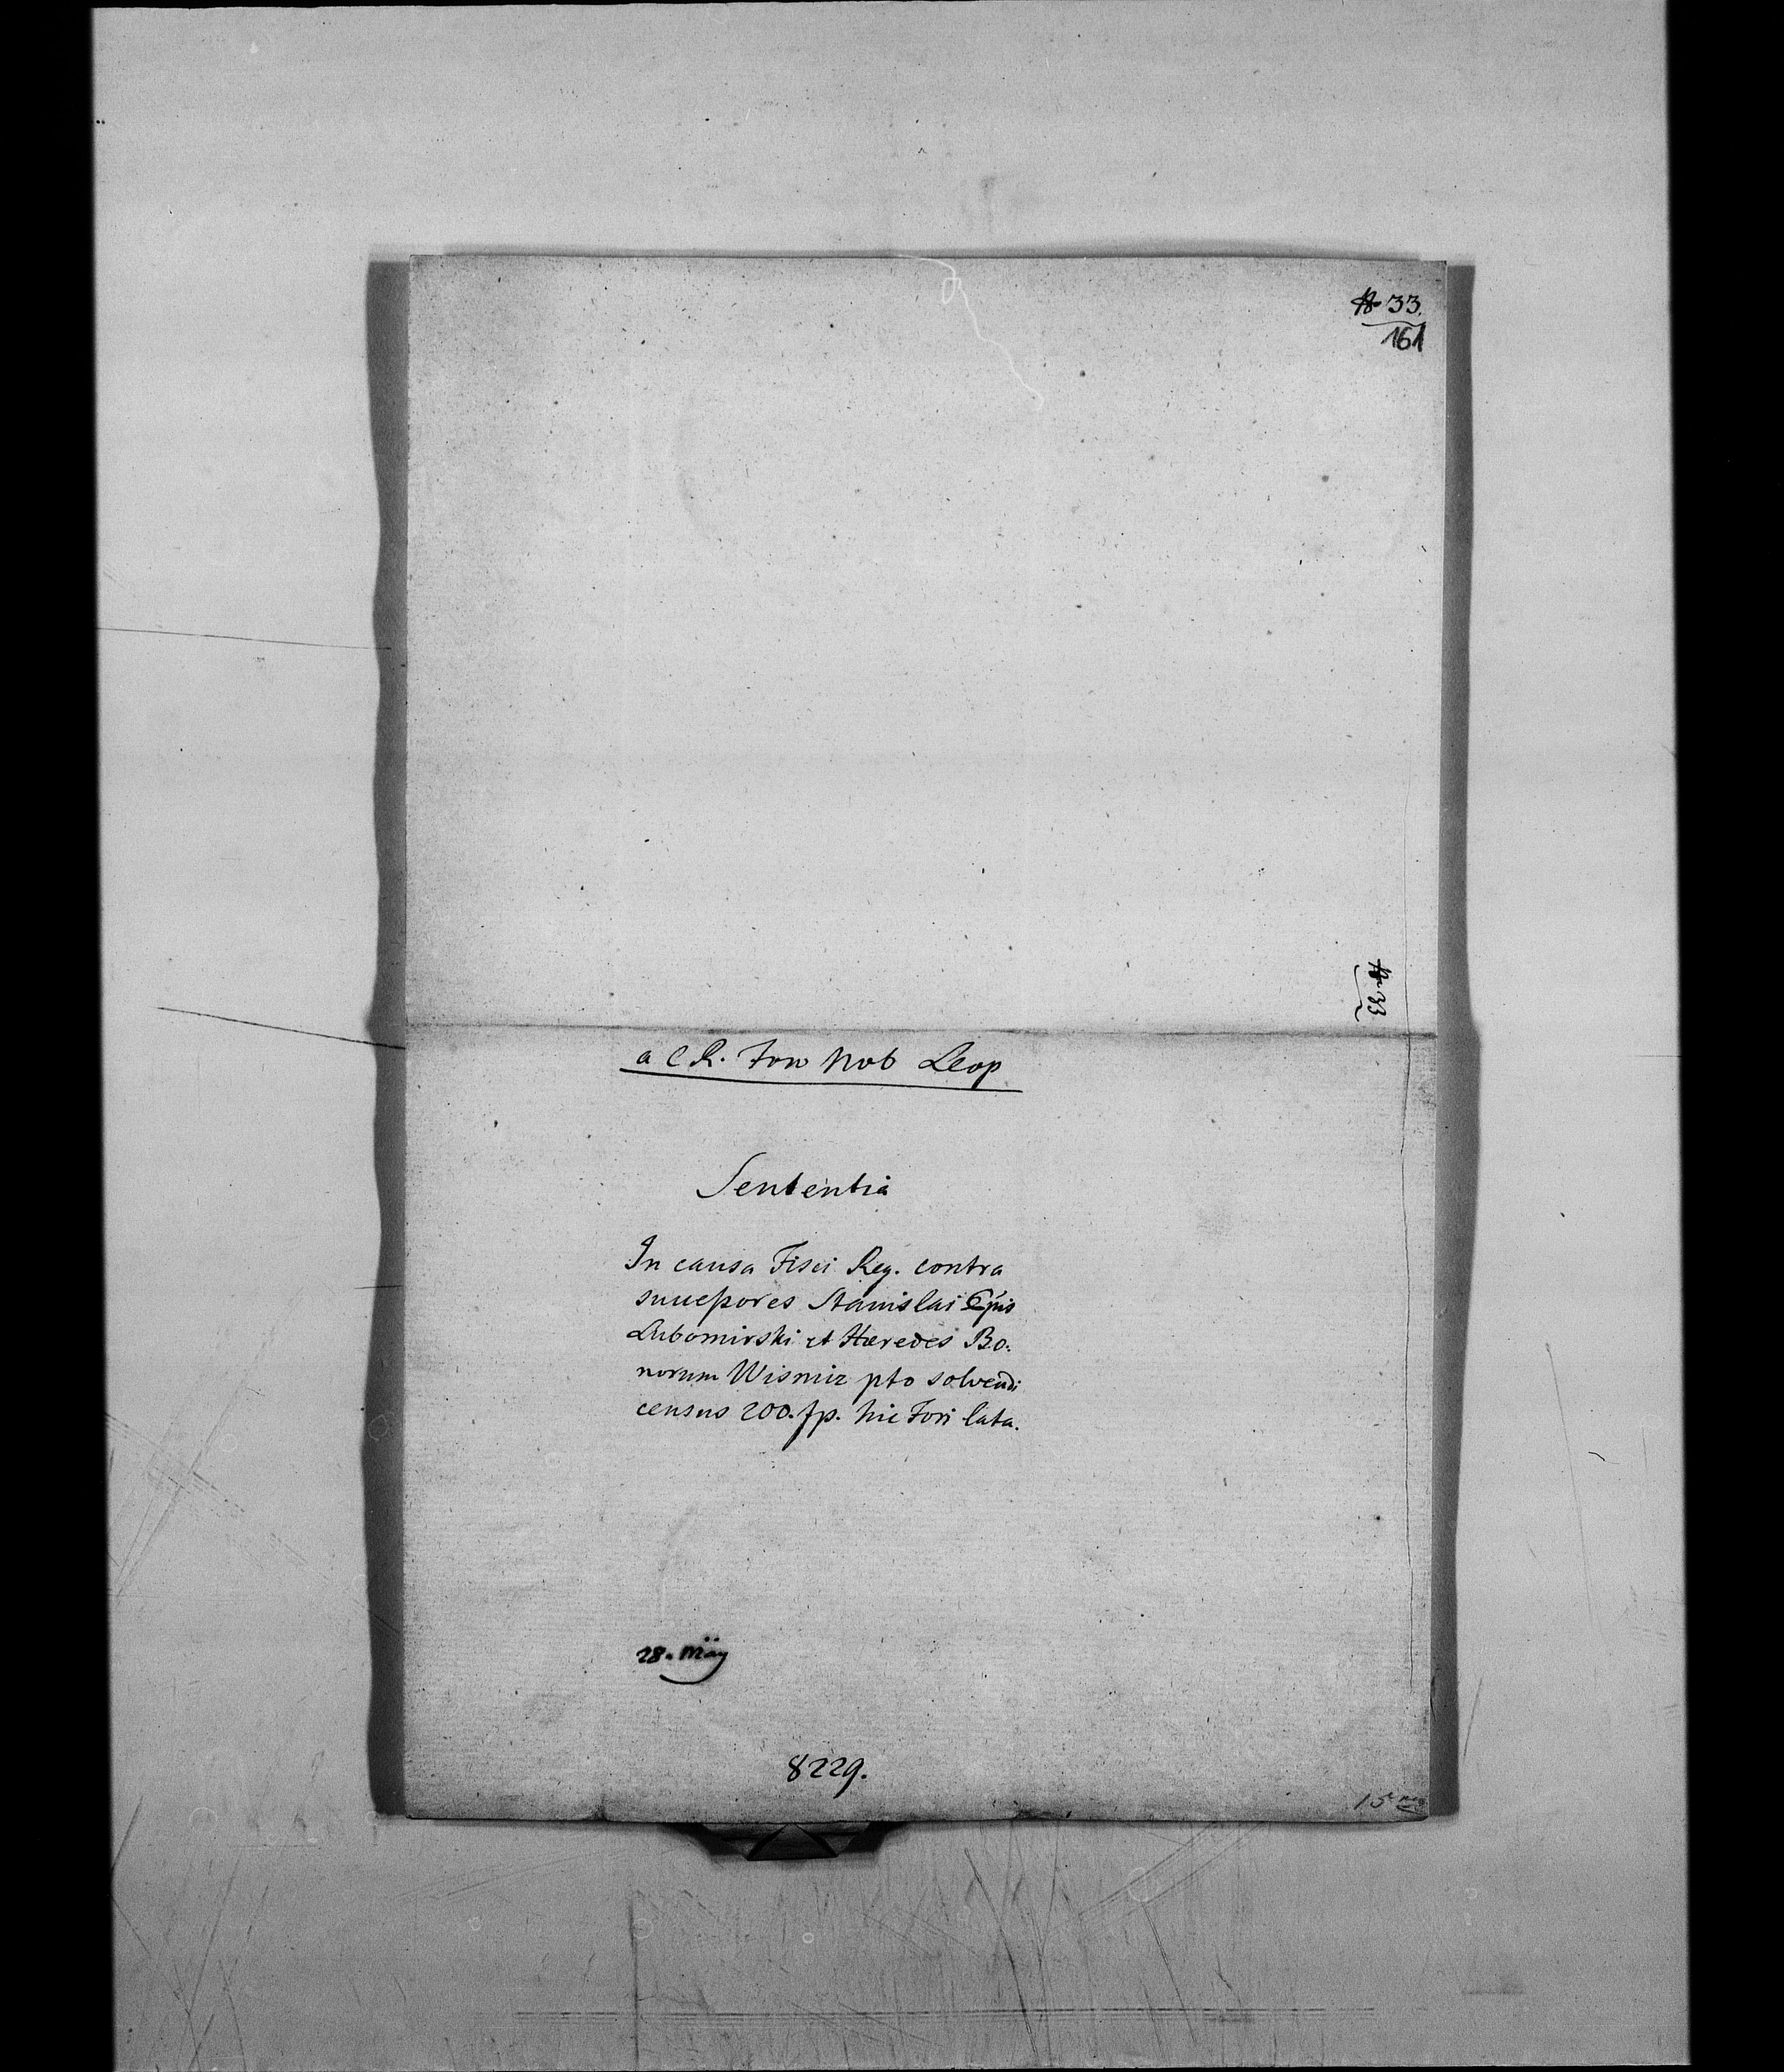 33.
161
33
a C R. Foro Nob Leop
Sententia
In causa Fisci Reg. contra
successores Stanislai Cpis
Lubomirski et Hæredes Bo:
norum Wisnicz pto solvendi
census 200. fp. hic Fori lata.
28. May
8229.
15